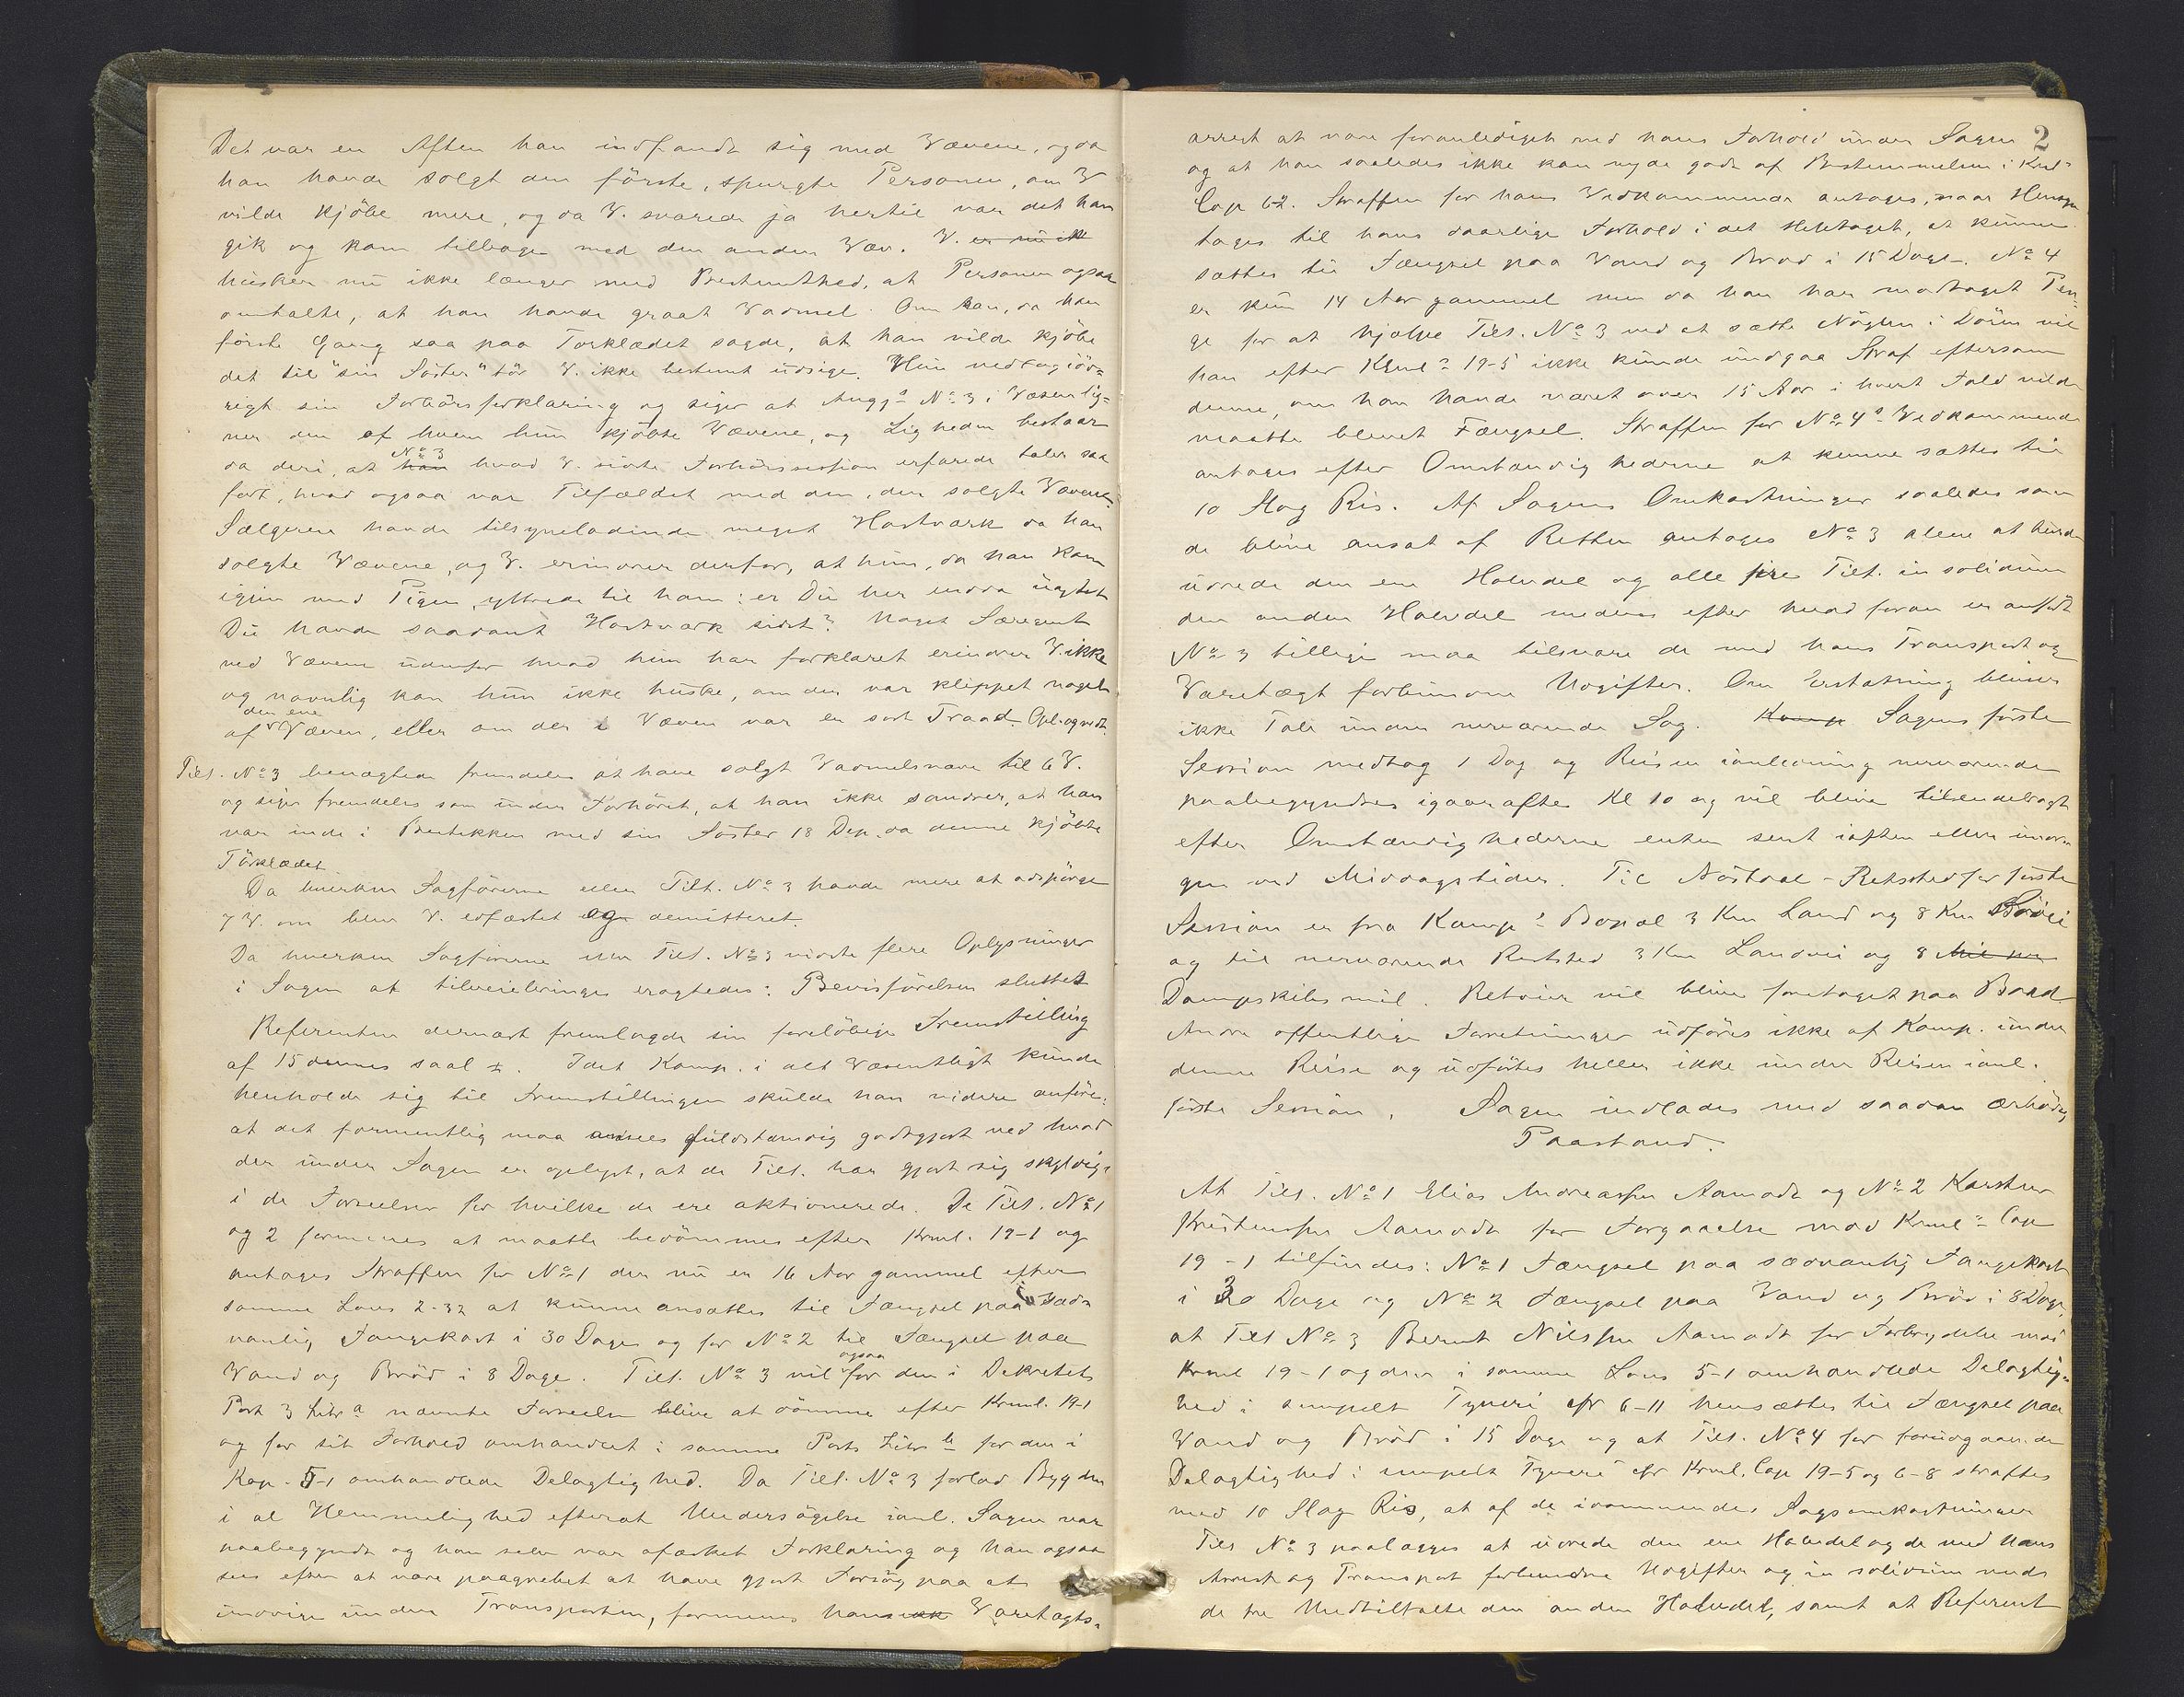 Det var en Aften han indfandt sig med Vævene, og da
han havde solgt den förste, spurgte Personen, om V
vilde kjöbe mere, og da V. svarede ja hertil var det han
gik og kom tilbage med den anden Væv. V. er nu ikk
husker nu ikke længer med Bestemthed, at Personen ogsaa
omtalte, at han havde graat Vadmel. Om han, da han
förste Gang saa paa Törklædet sagde, at han vilde kjöbe
det til "sin Söster" tör V. ikke bestemt udsige. Hun vedtog iöv=
rigt sin Forhörsforklaring og siger at Angjs No 3 i Væsen lig=
ner den af hvem hun kjöbte Vævene, og Ligheden bestaar
da deri, at han No 3 hvad V. sidste Forhörssession erfarede taler saa
fort, hvad ogsaa var Tilfældet med den, der solgte Vævene.
Sælgeren havde tilsyneladende meget Hastværk da han
solgte Vævene, og V. erindrer derfor, at hun, da han kom
igjen med Pigen, yttrede til ham: er Du her endda uagtet
Du havde saadant Hastværk sidst? Noget Særegent
ved Vævene udenfor hvad hun har forklaret erindrer V. ikke
og navnlig kan hun ikke huske, om der var klippet noget
af den ene Væven, eller om der i Væven var en sort Traad. Opl. og vedt.
Tilt. No 3 benægtede fremdeles at have solgt Vadmelsvæve til 6 V.
og siger fremdeles som under Forhöret, at han ikke sandser, at han
var inde i Butikken med sin Söster 18 Dep. da denne kjöbte
Törklædet.
Da hverken Sagförerne eller Tilt. No 3 havde mere at adspörge
7 V. om blev V. edfæstet og demitteret.
Da hverken Sagförerne eller Tilt. No 3 vidste flere Oplysninger
i Sagen at tilveiebringe eragtedes: Bevisförelsen sluttet
Referenten dernæst fremlagde sin foreløbige Fremstilling
af 15 dennes saal. Idet Komp. i alt Væsentligt kunde
henholde sig til Fremstillingen skulde han videre anföre:
at det formentlig maa ansees fuldstændig godtgjort ved hvad
der under Sagen er oplyst, at de Tilt. har gjort sig skyldige
i de Forseelser for hvilke de ere aktionerede. De Tilt. No 1
og 2 formenes at maatte bedömmes efter Krml. 19-1 og
antages Straffen for No 1 der nu er 16 Aar gammel efter
samme Lovs 2-32 at kunne ansættes til Fængsel paa sæd=
vanlig Fangekost i 30 Dage og for No 2 til Fængsel paa
Vand og Bröd i 8 Dage. Tilt. No 3 vil ogsaa for den i Dekretets
Post 3 Litr a nævnte Forseelse blive at dömme efter Krml. 19-1
og for sit Forhold omhandlet i samme Posts Litr b for den i
Kap. 5-1 omhandlede Delagtighed. Da Tilt. No 3 forlod Bygden
i al Hemmelighed efterat Undersögelse ianl. Sagen var
paabegyndt og han selv var afæsket Forklaring og han ogsaa
sees efter at være paagrebet at have gjort Forsög paa at
undvige under Transporten, formenes hans Varetægts=
2
arrest at være foranlediget ved hans Forhold under Sagen
og at han saaledes ikke kan nyde godt af Bestemmelsen i Krml
Cap 6-2. Straffen for hans Vedkommende antages, naar Hensyn
tages til hans daarlige Forhold i det Heletaget, at kunne
sættes til Fængsel paa Vand og Bröd i 15 Dage. No 4
er kun 14 Aar gammel men da han har modtaget Pen=
ge for at hjælpe Tilt. No 3 ved at sætte Nöglen i Dören vil
han efter Krml 19-5 ikke kunde undgaa Straf eftersom
denne, om han havde været over 15 Aar i hvert Fald vilde
maatte blevet Fængsel. Straffen for No 4s Vedkommende
antages efter Omstændighederne at kunne sættes til
10 Slag Ris. Af Sagens Omkostninger saaledes som
de blive ansat af Retten antages No 3 alene at burde
udrede den ene Halvdel og alle fire Tilt. in solidum
den anden Halvdel medens efter hvad foran er anfört
No 3 tillige maa tilsvare de med hans Transport og
Varetægt forbundne Udgifter. Om Erstatning bliver
ikke Tale under nærværende Sag. Komp Sagens förste
Session medtog 1 Dag og Reisen ianledning nærværende
paabegyndtes igaaraftes Kl 10 og vil blive tilendebragt
efter Omstændighederne enten sent iaften eller imor=
gen ved Middagstider. Til Nöstdal-Retssted for förste
Session er fra Komps Bopæl 3 Km Land og 8 Km Sövei
og til nærværende Retssted 3 Km Landvei og 8 Mil
Dampskibsmil. Retour vil blive foretaget paa Baad
Andre offentlige Forretninger udföres ikke af Komp. under
denne Reise og udförtes heller ikke under Reisen ianl.
förste Session. Sagen indlades med saadan ærbödig
Paastand.
At Tilt. No 1 Elias Andreassen Aamodt og No 2 Karsten
Kristensen Aamodt for Forgaaelse mod Krml Cap
19-1 tilfindes: No 1 Fængsel paa sædvanlig Fangekost
i 30 Dage og No 2 Fængsel paa Vand og Bröd i 8 Dage,
at Tilt No 3 Bernt Nilssen Aamodt for Forbrydelse mod
Krml 19-1 og den i samme Lovs 5-1 omhandlede Delagtig=
hed i simpelt Tyveri cfr 6-11 hensættes til Fængsel paa
Vand og Bröd i 15 Dage og at Tilt. No 4 for foregaaende
Delagtighed i simpelt Tyveri cfr Krml. Cap 19-5 og 6-8 straffes
med 10 Slag Ris, at af de idömmendes Sagsomkostninger
Tilt No 3 paalægges at udrede den ene Halvdel og de med hans
Arrest og Transport forbundne Udgifter og in solidum med
de tre Medtiltalte den anden Halvdel, samt at Referent